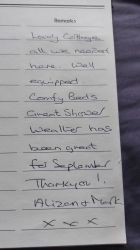 Remarks
Lovely Cottage,
all we needed
here. Well
equipped
Comfy Beds
Great Shower
Weather has
been great
for September
Thankyou!
Alizon & Mark
x x x